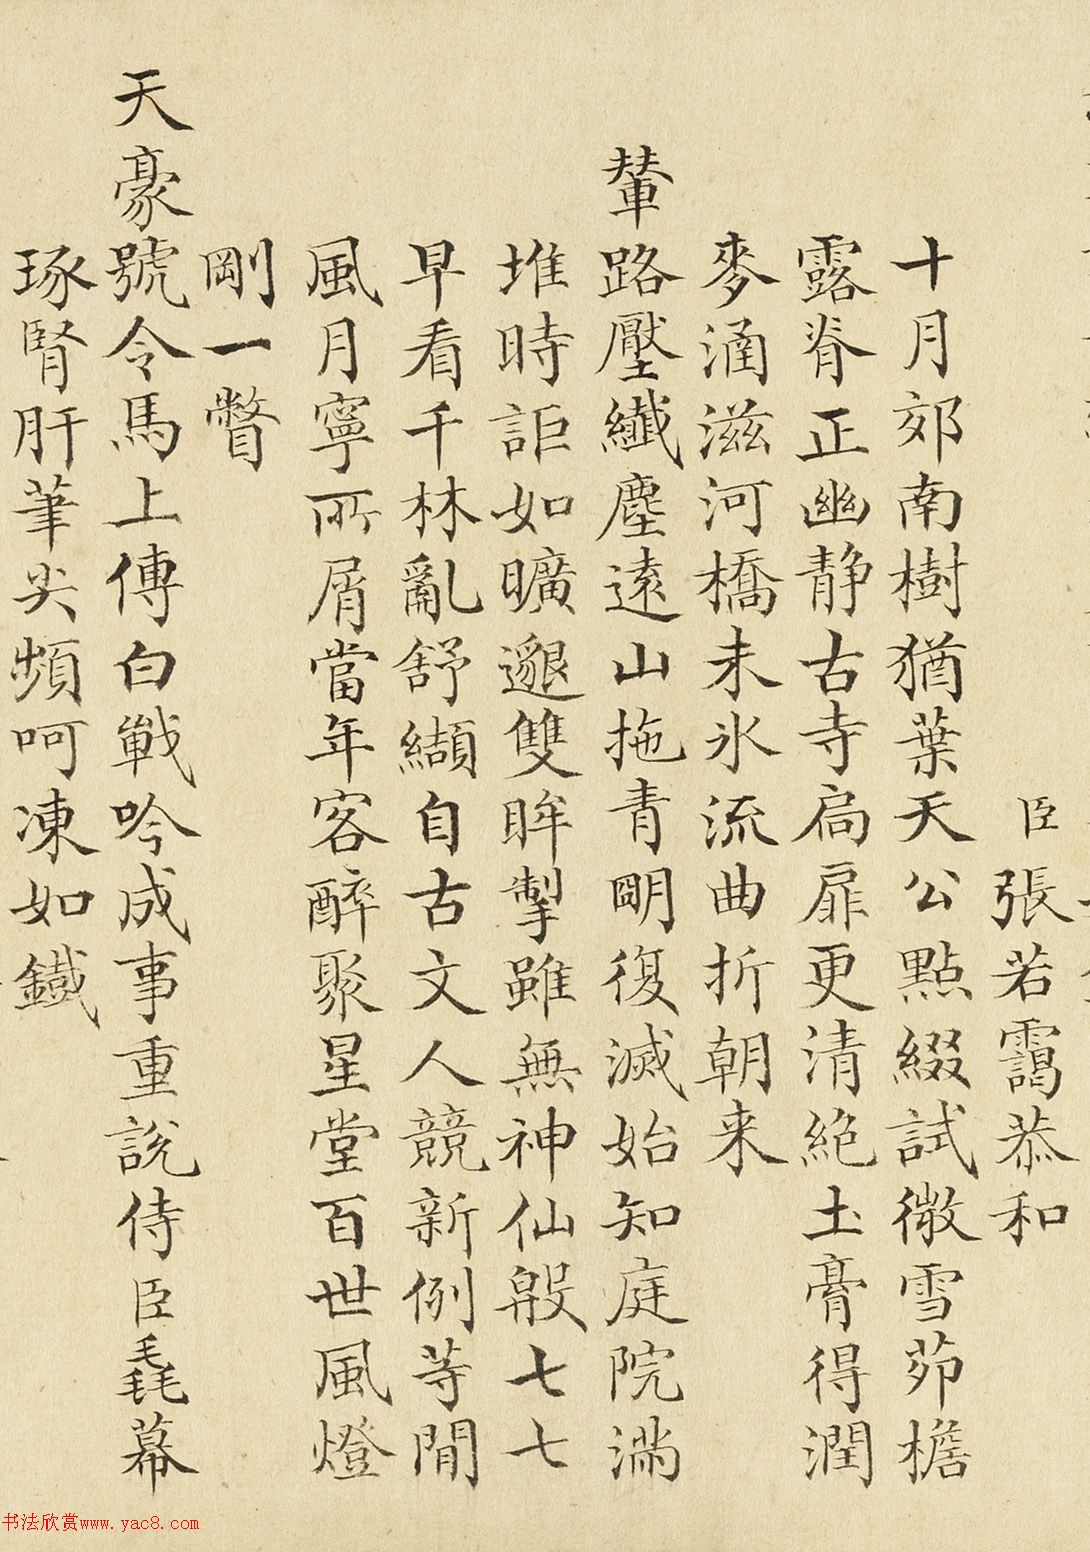 臣張若靄恭和
十月郊南樹猶葉天公點綴試微雪茆檐
露脊正幽静古寺扃扉更清絶土膏得潤
麥涵滋河橋未氷流曲折朝来
輦路壓纖塵遠山拖青明復滅始知庭院满
堆時詎如曠邈雙眸掣雖無神仙殷七七
早看千林亂舒纈自古文人競新例等閒
風月寧所屑當年客醉聚星堂百世風燈
剛一瞥
天豪號令馬上傳白戰吟成事重説侍臣毳幕
琢腎肝筆尖頻呵凍如鐵
书法欣赏www.yac8.com